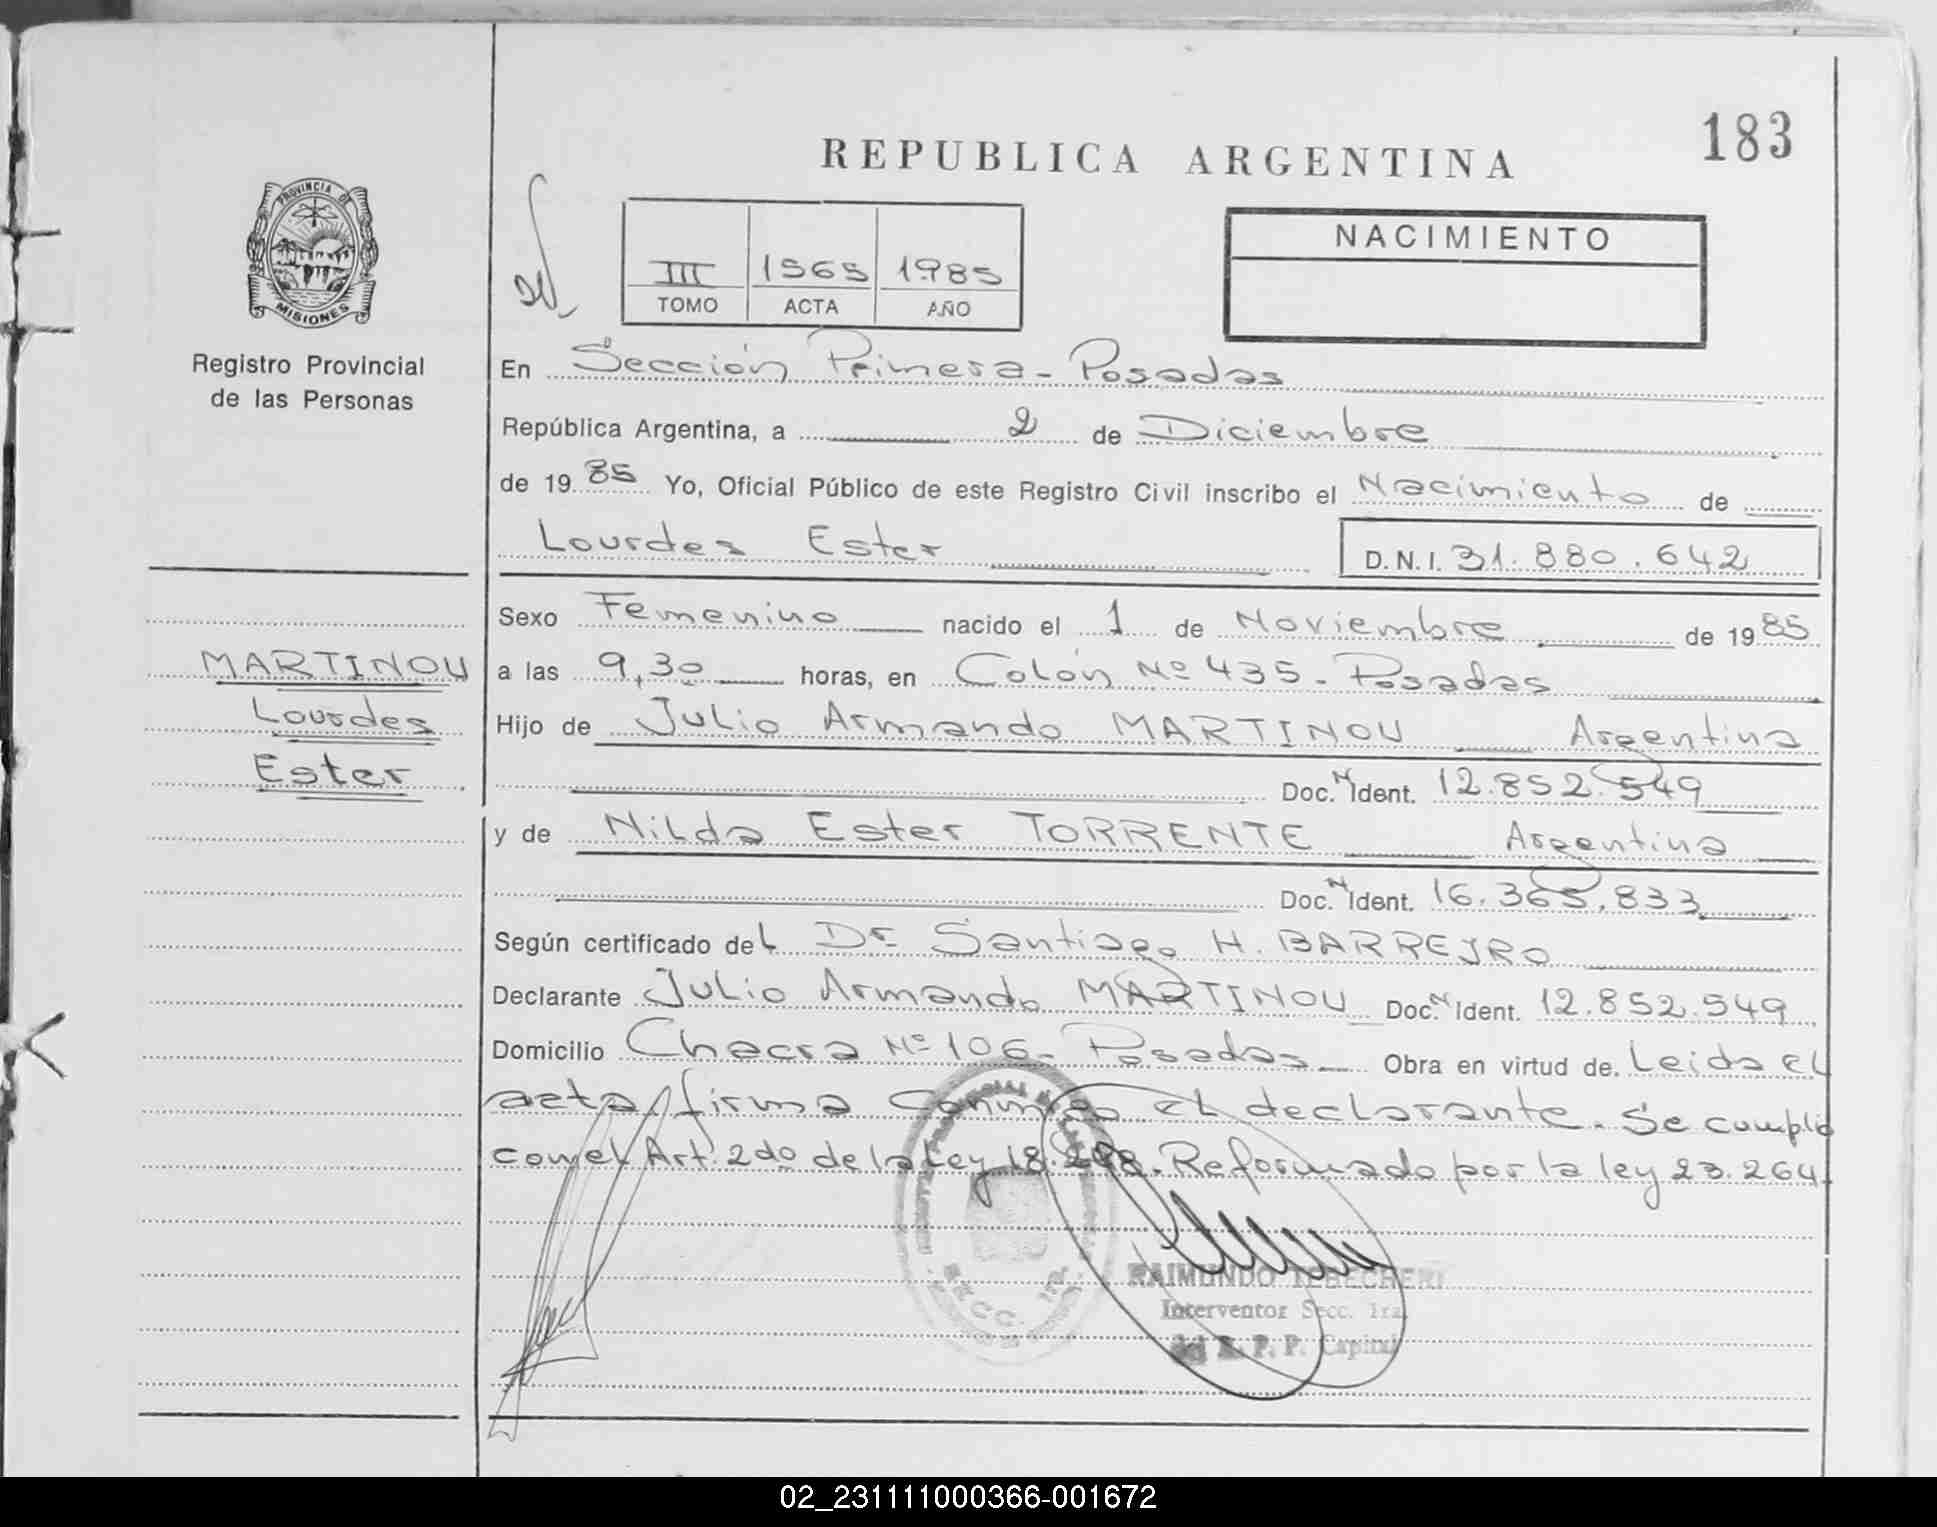 183
REPUBLICA ARGENTINA
PROVINCIA DE
MISIONES
Registro Provincial
de las Personas
III 1565 1985
TOMO ACTA AÑO
NACIMIENTO
En Sección Primera - Posadas
República Argentina, a 2 de Diciembre
de 1985 Yo, Oficial Público de este Registro Civil inscribo el Nacimiento de
Lourdes Ester D.N.I. 31.880.642
Sexo Femenino nacido el 1 de Noviembre de 1985
MARTINOU
Lourdes
Ester
a las 9,30 horas, en Colón Nº 435 - Posadas
Hijo de Julio Armando MARTINOU Argentina
Doc. N Ident. 12.852.549
y de Nilda Ester TORRENTE Argentina
Doc. N Ident. 16.365.833
Según certificado del Dr. Santiago H. BARREJRO
Declarante Julio Armando MARTINOU Doc. N Ident. 12.852.549
Domicilio Chacra Nº 106 - Posadas Obra en virtud de. Leida el
acta, firma conmigo el declarante. Se cumplió
con el Art. 2do de la Ley 18.248. Reformado por la ley 23.264.
SECC. 1ra.
RAIMUNDO TEBECHERI
Interventor Secc. 1ra.
del R. P. P. Capital
02_231111000366-001672